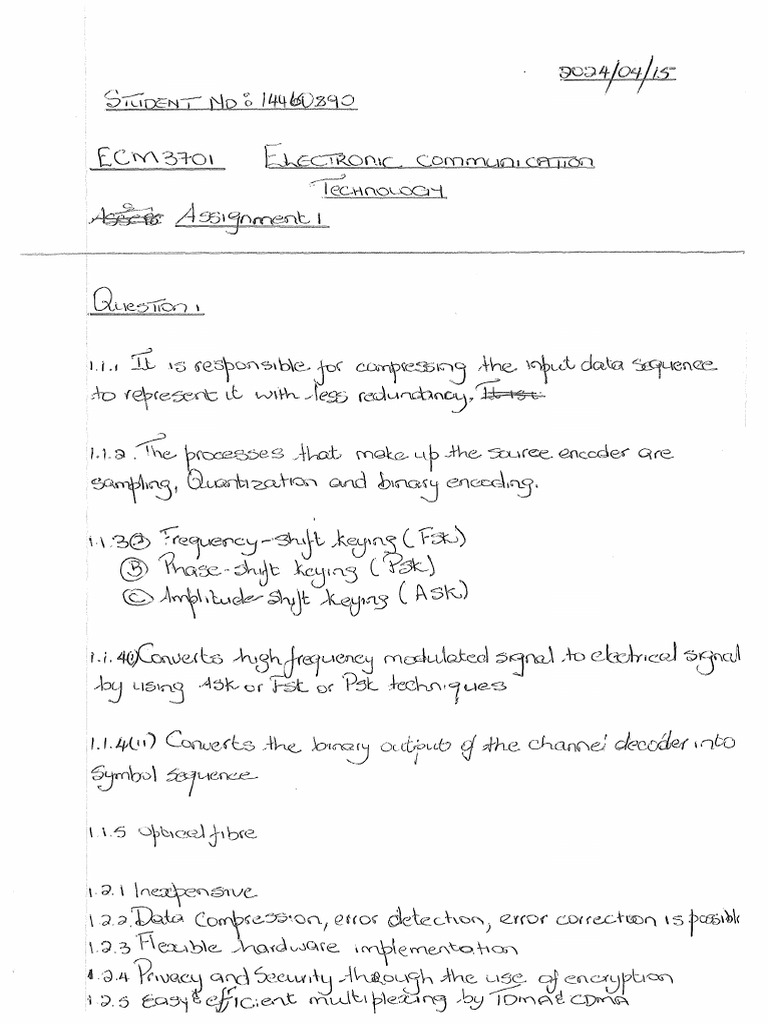 2024/04/15
STUDENT NO: 14460890
ECM3701 ELECTRONIC COMMUNICATION
TECHNOLOGY
Assignment 1
QUESTION 1
1.1.1 It is responsible for compressing the input data sequence
to represent it with less redundancy. It ist
1.1.2. The processes that make up the source encoder are
sampling, Quantization and binary encoding.
1.1.3 (a) Frequency-shift keying (FSK)
(B) Phase-shift keying (PSK)
(C) Amplitude-shift keying (ASK)
1.1.4(i) Converts high frequency modulated signal to electrical signal
by using ASK or FSK or PSK techniques
1.1.4(ii) Converts the binary output of the channel decoder into
Symbol sequence
1.1.5 Optical fibre
1.2.1 Inexpensive
1.2.2. Data Compression, error detection, error correction is possible
1.2.3 Flexible hardware implementation
1.2.4 Privacy and Security through the use of encryption
1.2.5 Easy & efficient multiplexing by TDMA & CDMA